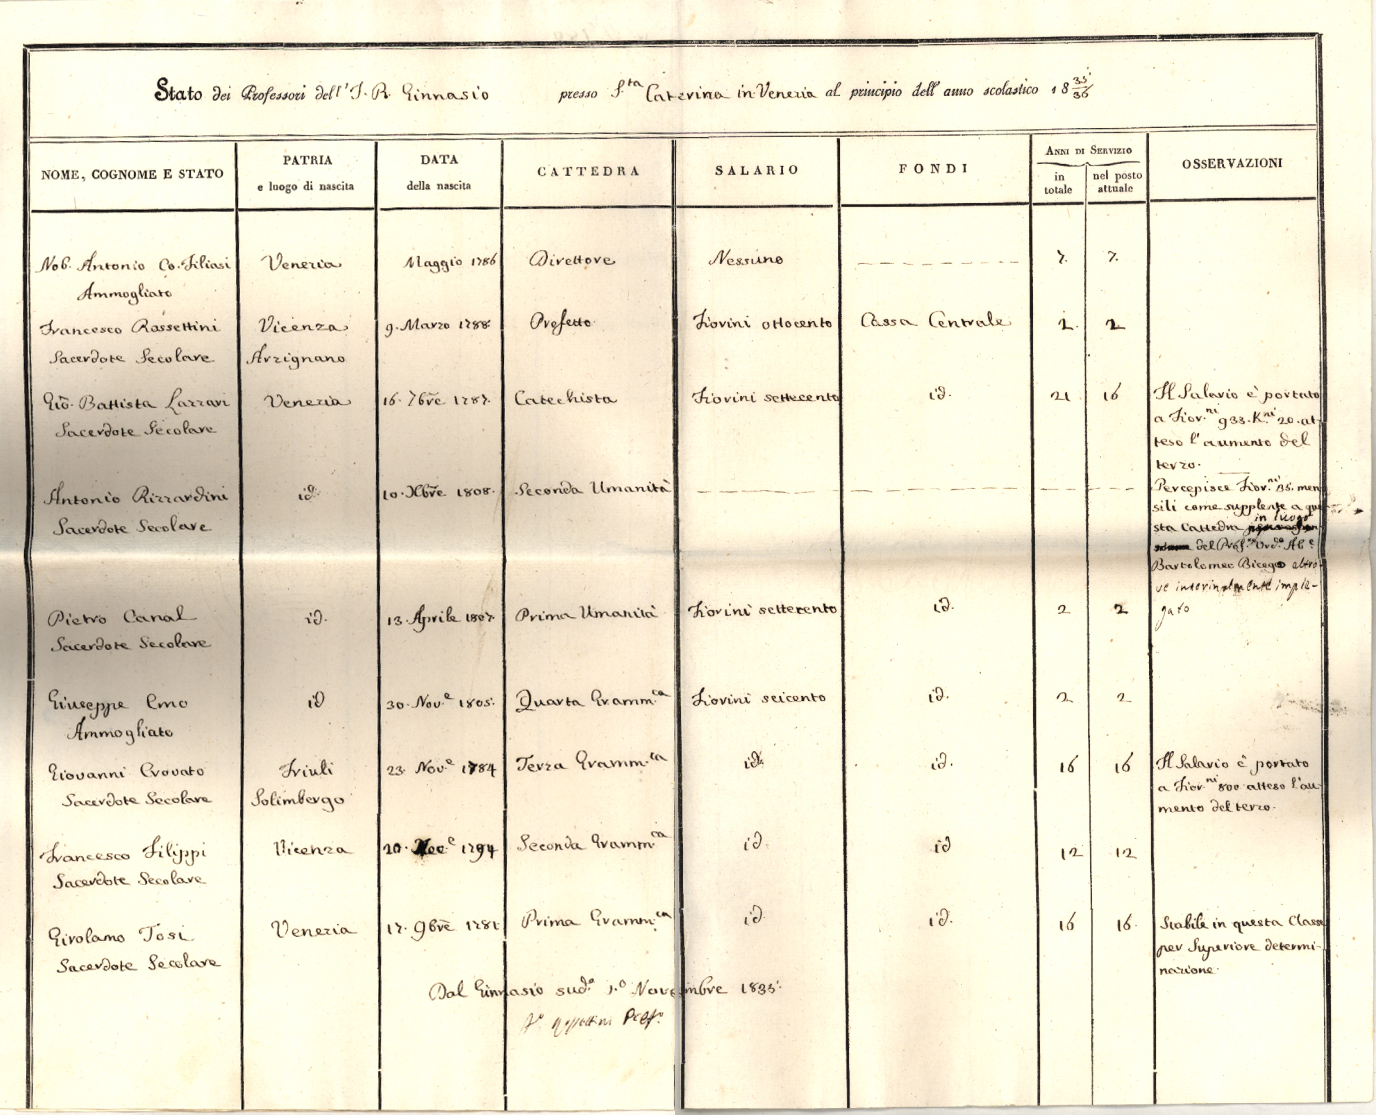 Stato dei Professori dell' I. R. Ginnasio presso S.ta Caterina in Venezia al principio dell' anno scolastico 1835/36
NOME, COGNOME E STATO
PATRIA
e luogo di nascita
DATA
della nascita
CATTEDRA
SALARIO
FONDI
ANNI DI SERVIZIO
in totale
nel posto attuale
OSSERVAZIONI
Nob. Antonio Co. Filiasi Venezia Maggio 1786 Direttore Nessuno 7. 7.
Ammogliato
Francesco Rossettini Vicenza 9. Marzo 1788 Prefetto Fiorini ottocento Cassa Centrale 2. 2
Sacerdote Secolare Arzignano
Gio. Battista Lazzari Venezia 16. 7bre 1787. Catechista Fiorini settecento id. 21 16
Sacerdote Secolare
Il Salario è portato
a Fior.ni 933. K.ni 20. at-
teso l'aumento del
terzo.
Antonio Rizzardini id. 10. Xbre 1808. Seconda Umanità
Sacerdote Secolare
Percepisce Fior.ni 25. men
sili come supplente a que
sta Cattedra in luogo
del Prof.re Ord.o Ab.e
Bartolomeo Bicego altro-
ve interinalmente impie-
gato
Pietro Canal id. 13. Aprile 1807. Prima Umanità Fiorini settecento id. 2 2
Sacerdote Secolare
Giuseppe Emo id 30. Nov.e 1805. Quarta Gramm.ca Fiorini seicento id. 2 2
Ammogliato
Giovanni Crovato Friuli 23. Nov.e 1784 Terza Gramm.ca id. id. 16 16
Sacerdote Secolare Solimbergo
Il Salario è portato
a Fior.ni 800 atteso l'au-
mento del terzo.
Francesco Filippi Vicenza 20. Dec.e 1794 Seconda Gramm.ca id. id 12 12
Sacerdote Secolare
Girolamo Tosi Venezia 17. 9bre 1781 Prima Gramm.ca id. id. 16 16.
Sacerdote Secolare
Stabile in questa Classe
per Superiore determi-
nazione.
Dal Ginnasio sud.o 1.o Novembre 1835.
F.o Rossettini Pref.o